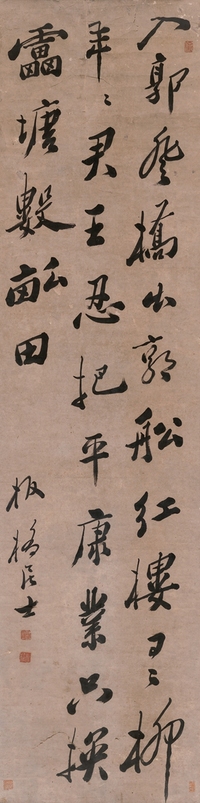 入郭登橋出郭船紅樓日〻柳
年〻君王忍把平康業只換
靁塘數畝田
板橋居士